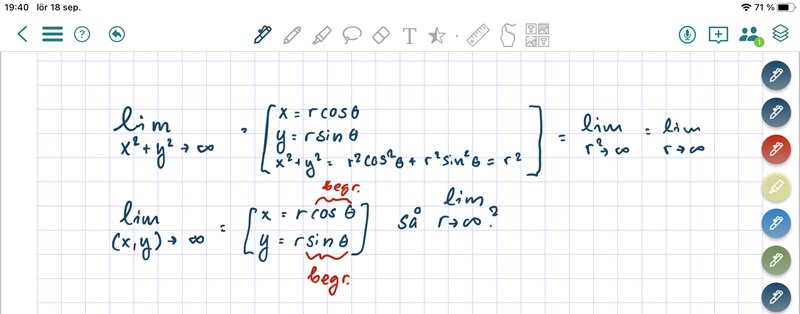 19:40 lör 18 sep. 71 %
T 1
lim x²+y²→∞ = [x = r cos θ
y = r sin θ
x²+y² = r²cos²θ + r²sin²θ = r²] = lim r²→∞ = lim r→∞
begr.
lim (x,y)→∞ = [x = r cos θ
y = r sin θ] så lim r→∞?
begr.